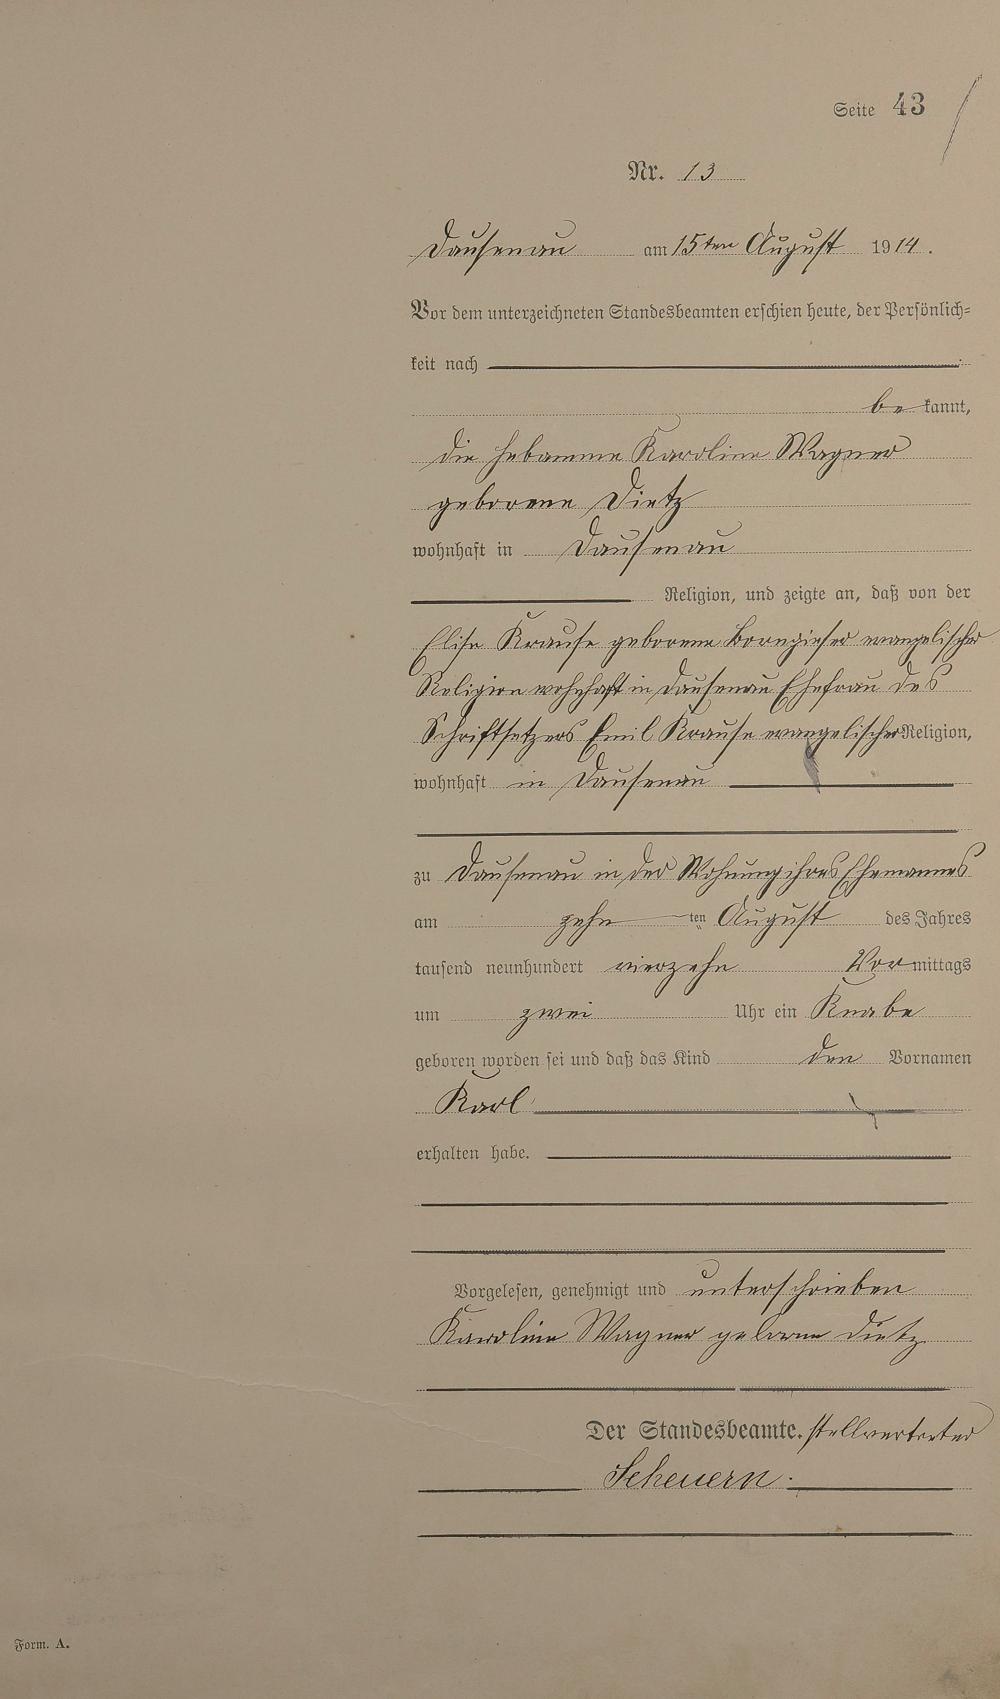 Seite 43
Nr. 13
Dausenau am 15ten August 1914.
Vor dem unterzeichneten Standesbeamten erschien heute, der Persönlich-
keit nach
be kannt,
die Hebamme Karoline Wagner
geborene Dietz
wohnhaft in Dausenau
Religion, und zeigte an, daß von der
Elise Krause geborene Borngieser evangelischer
Religion wohnhaft in Dausenau Ehefrau des
Schriftsetzers Emil Krause evangelischer Religion,
wohnhaft in Dausenau
zu Dausenau in der Wohnung ihres Ehemannes
am zehn ten August des Jahres
tausend neunhundert vierzehn Vormittags
um zwei Uhr ein Knabe
geboren worden sei und daß das Kind den Vornamen
Karl
erhalten habe.
Vorgelesen, genehmigt und unterschrieben
Karoline Wagner geborne Dietz
Der Standesbeamte. stellvertreter
Scheuern.
Form. A.